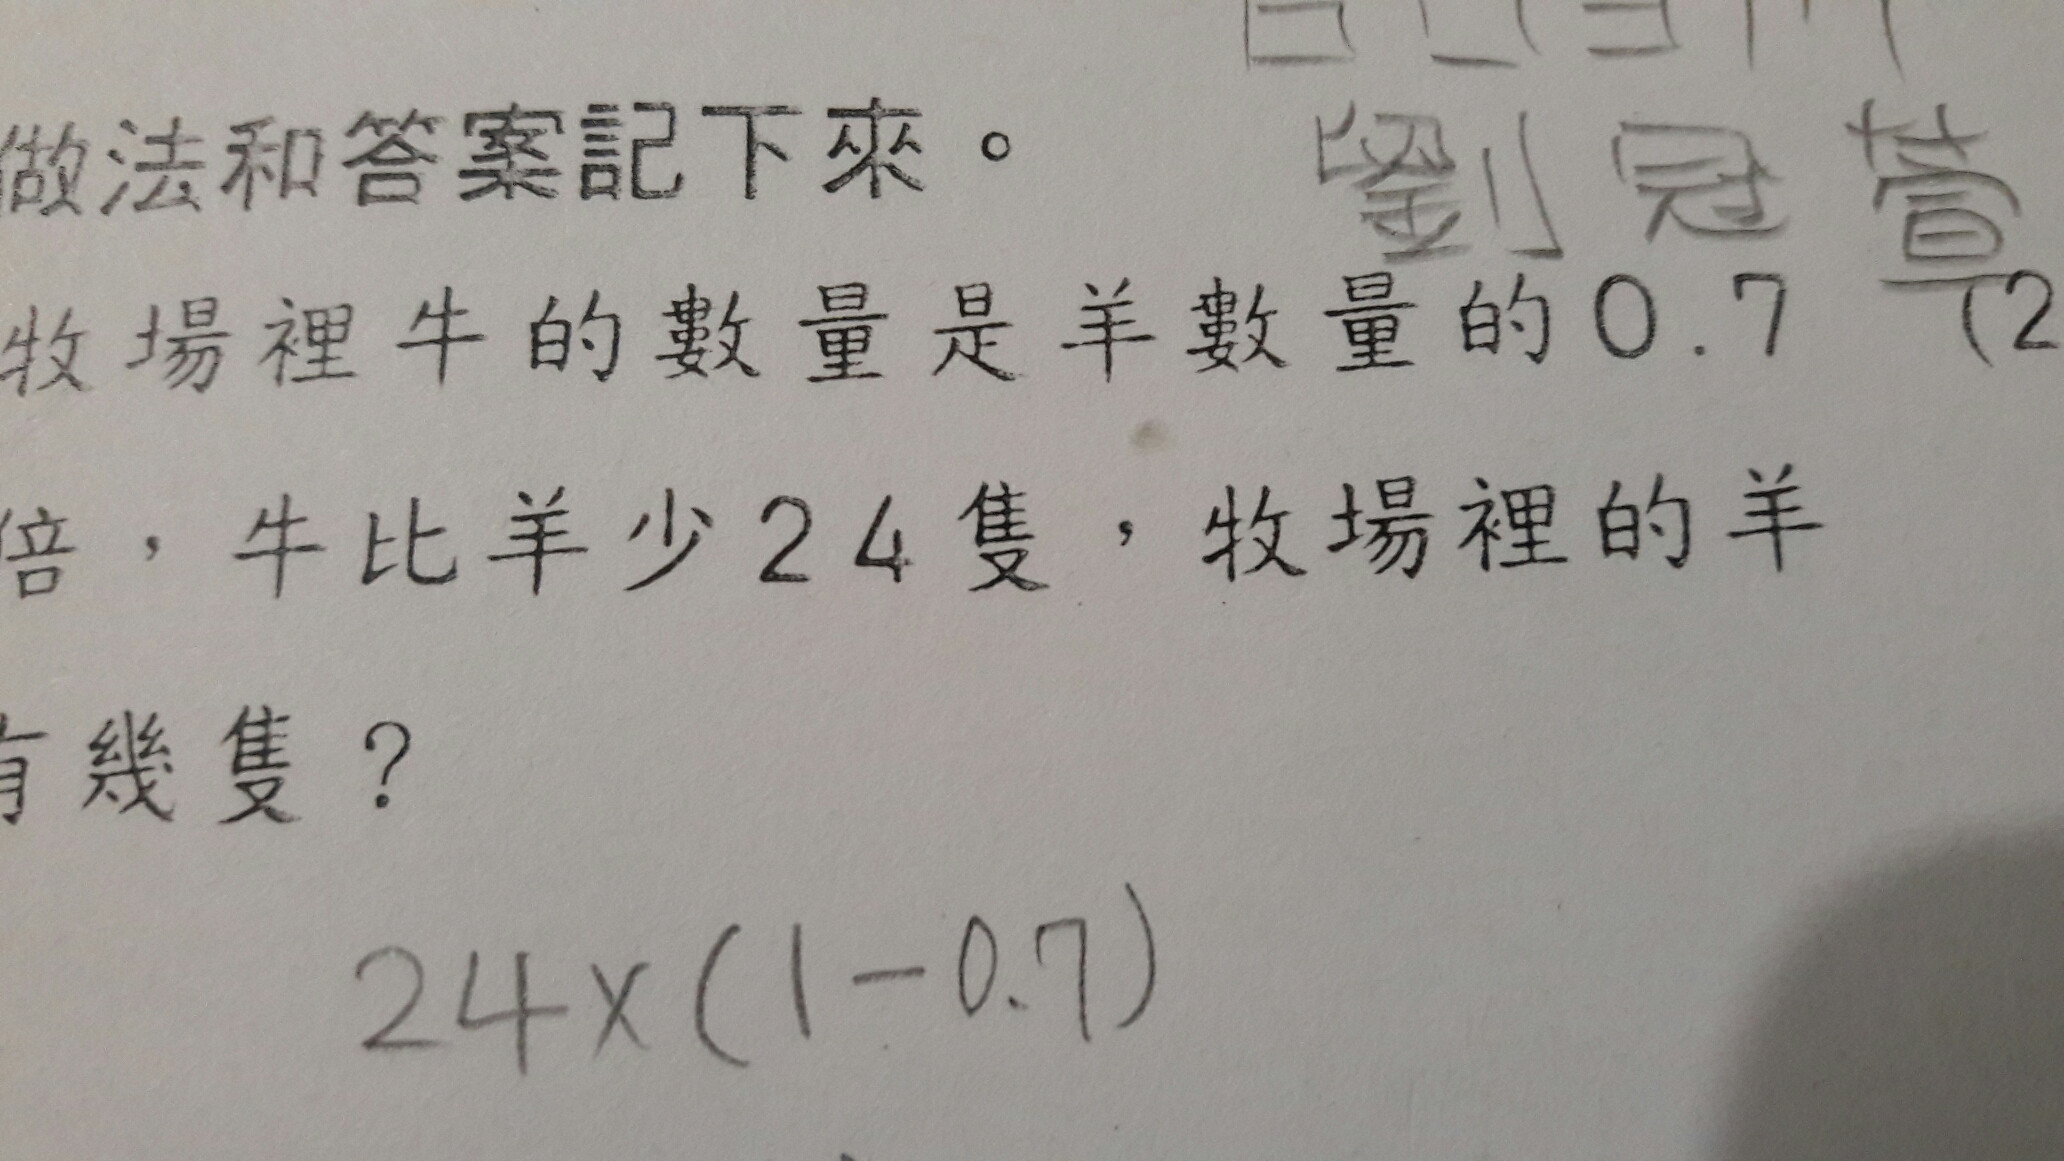 做法和答案記下來。
劉冠萱
牧場裡牛的數量是羊數量的0.7
(2
倍，牛比羊少24隻，牧場裡的羊
有幾隻？
24×(1-0.7)